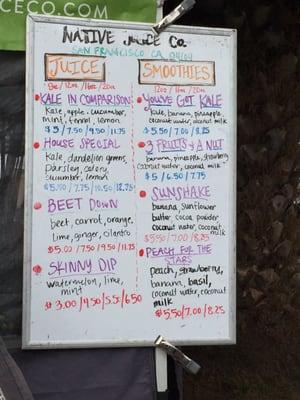 CECO.COM
NATIVE JUICE CO.
SAN FRANCISCO, CA
JUICE
8oz / 12oz / 16oz / 20oz
KALE IN COMPARISON
Kale, apple, cucumber,
mint, fennel, lemon
$5 / 7.50 / 9.50 / 11.75
HOUSE SPECIAL
Kale, dandelion greens,
parsley, celery,
cucumber, lemon
$5.50 / 7.75 / 10.50 / 12.75
BEET DOWN
beet, carrot, orange,
lime, ginger, cilantro
$5.00 / 7.50 / 9.50 / 11.75
SKINNY DIP
watermelon, lime,
mint
$3.00 / 4.50 / 5.5 / 6.50
SMOOTHIES
12oz / 16oz / 20oz
YOU'VE GOT KALE
Kale, banana, pineapple,
coconut water, coconut milk
$5.50 / 7.00 / 8.25
3 FRUITS & A NUT
banana, pineapple, strawberry
coconut water, coconut milk
$5 / 6.50 / 7.75
SUNSHAKE
banana, sunflower
butter, cocoa powder
coconut water, coconut milk
$5.50 / 7.00 / 8.25
PEACH FOR THE
STARS
peach, strawberry,
banana, basil,
coconut water, coconut
milk
$5.50 / 7.00 / 8.25